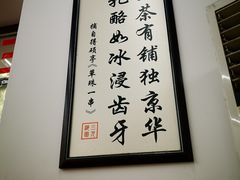 茶有铺独京华
乳酪如冰浸齿牙
摘自得硕亭《草珠一串》